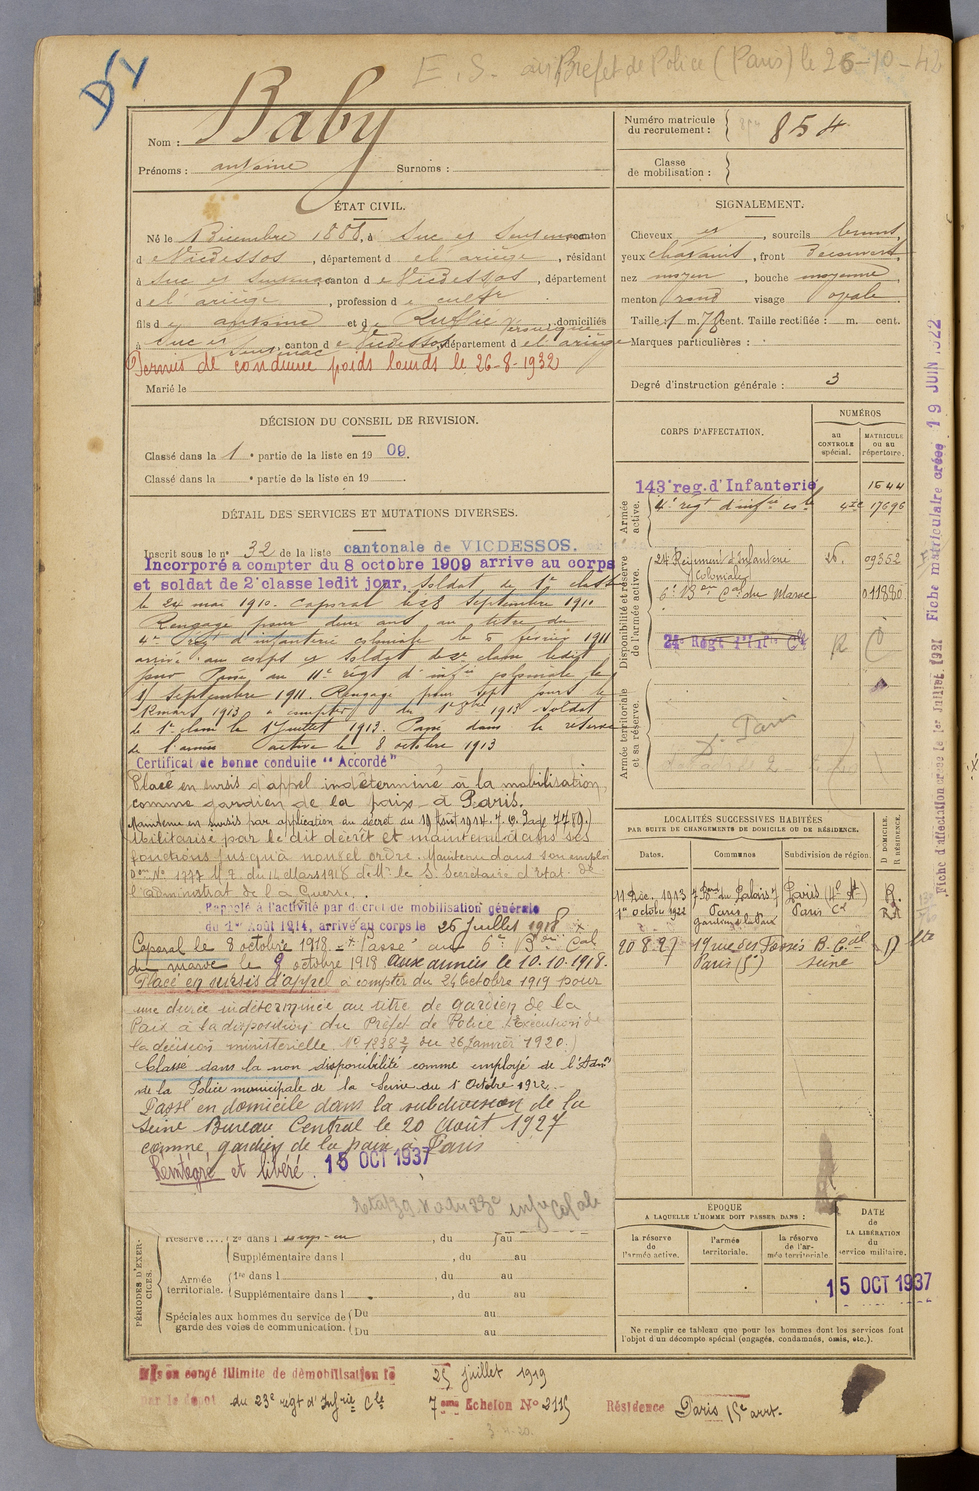 E. S. au Prefet de Police (Paris) le 26-10-42
Nom : Baby
Prénoms : antoine Surnoms :
Numéro matricule du recrutement : 854
Classe de mobilisation :
ÉTAT CIVIL.
Né le 1 Décembre 1888, à Suc et Sentenac canton
d e Vicdessos, département d e l'ariège, résidant
à Suc et Sentenac, canton d e Vicdessos, département
d e l'ariège, profession d e cultr
fils d e antoine et d e Ruffié domiciliés
à Suc et Sentenac canton d e Vicdessos, département d e l'ariège
Permis de conduire poids lourds le 26-8-1932
Marié le
SIGNALEMENT.
Cheveux et, sourcils bruns,
yeux chatains, front découvert,
nez moyen, bouche moyenne,
menton rond visage ovale.
Taille : 1 m. 70 cent. Taille rectifiée : m. cent.
Marques particulières :
Degré d'instruction générale : 3
DÉCISION DU CONSEIL DE REVISION.
Classé dans la 1e partie de la liste en 1909.
Classé dans la e partie de la liste en 19
DÉTAIL DES SERVICES ET MUTATIONS DIVERSES.
Inscrit sous le n° 32 de la liste cantonale de VICDESSOS.
Incorporé a compter du 8 octobre 1909 arrive au corps
et soldat de 2e classe ledit jour, Soldat de 1e classe
le 24 mai 1910. Caporal le 28 septembre 1910
Rengagé pour deux ans au titre du
4e regt d'infanterie coloniale le 6 février 1911
arrivé au corps et soldat de 2e classe ledit
jour Passé au 11e regt d'infie coloniale le
1 Septembre 1911. Rengagé pour sept jours le
12 mars 1913 à compter du 1er 8bre 1913 Soldat
de 1e classe le 1er Juillet 1913. Passé dans la réserve
de l'armée active le 8 octobre 1913
Certificat de bonne conduite "Accordé"
Placé en sursis d'appel indéterminé à la mobilisation
comme gardien de la paix à Paris.
Maintenu en sursis par application du décret du 19 Août 1914. J. O. Page 7789.)
Militarisé par le dit décret et maintenu dans ses
fonctions jusqu'à nouvel ordre. Maintenu dans son emploi
Don N° 1777 M. 2. du 14 Mars 1918 de Mr. le S. Secrétaire d'Etat de
l'administrat de la Guerre.
Rappelé à l'activité par décret de mobilisation générale
du 1er Août 1914, arrivé au corps le 26 juillet 1918
Caporal le 8 octobre 1918 Passé au 6e Bon Cal
du maroc le 9 octobre 1918 aux armées le 10.10.1918.
Placé en sursis d'appel à compter du 24 Octobre 1919 pour
une durée indéterminée au titre de Gardien de la
Paix à la disposition du Préfet de Police (Exécution de
la décision ministerielle N° 1238 du 26 Janvier 1920.)
Classé dans la non disponibilité comme employé de l'Adon
de la Police municipale de la Seine du 1er Octobre 1922.
Passé en domicile dans la subdivision de la
Seine Bureau Central le 20 Août 1927
comme gardien de la paix à Paris
Réintégré et libéré. 15 OCT 1937
CORPS D'AFFECTATION.
NUMÉROS
au CONTROLE spécial.
MATRICULE ou au répertoire.
Armée active.
143e reg. d'Infanterie 1644
4e regt d'infie cole 17696
Disponibilité et réserve de l'armée active.
24 Régiment d'Infanterie Coloniale 26. 09352
6e Bon Cal du Maroc 011880
24e Regt d'Infie Cle
Armée territoriale et sa réserve.
Fiche d'affectation créée le 1er Juillet 1921 Fiche matriculaire créée 19 JUIN 1922
LOCALITÉS SUCCESSIVES HABITÉES
PAR SUITE DE CHANGEMENTS DE DOMICILE OU DE RÉSIDENCE.
Dates. Communes Subdivision de région. D DOMICILE. R RÉSIDENCE.
11 Déc. 1913 7 Bard du Palais 7 Paris (4e At) R.
1er octobre 1922 Paris Gardien de la Paix Paris Cl R
20 8.27 19 rue des Fossés B. Paris (5e) Seine D
ÉPOQUE
A LAQUELLE L'HOMME DOIT PASSER DANS :
la réserve de l'armée active.
l'armée territoriale.
la réserve de l'armée territoriale.
DATE de LA LIBÉRATION du service militaire.
15 OCT 1937
Ne remplir ce tableau que pour les hommes dont les services font
l'objet d'un décompte spécial (engagés, condamnés, omis, etc.).
PÉRIODES D'EXERCICES.
Réserve 2e dans l , du au
Supplémentaire dans l , du au
Armée territoriale. 1re dans l , du au
Supplémentaire dans l , du au
Spéciales aux hommes du service de garde des voies de communication. Du au
Du au
Mis en congé illimité de démobilisation le 25 juillet 1919
par le dépôt du 23e regt d'Infrie Cle 7eme Echelon N° 2115 Résidence Paris 15e arrt.
3-4-20.